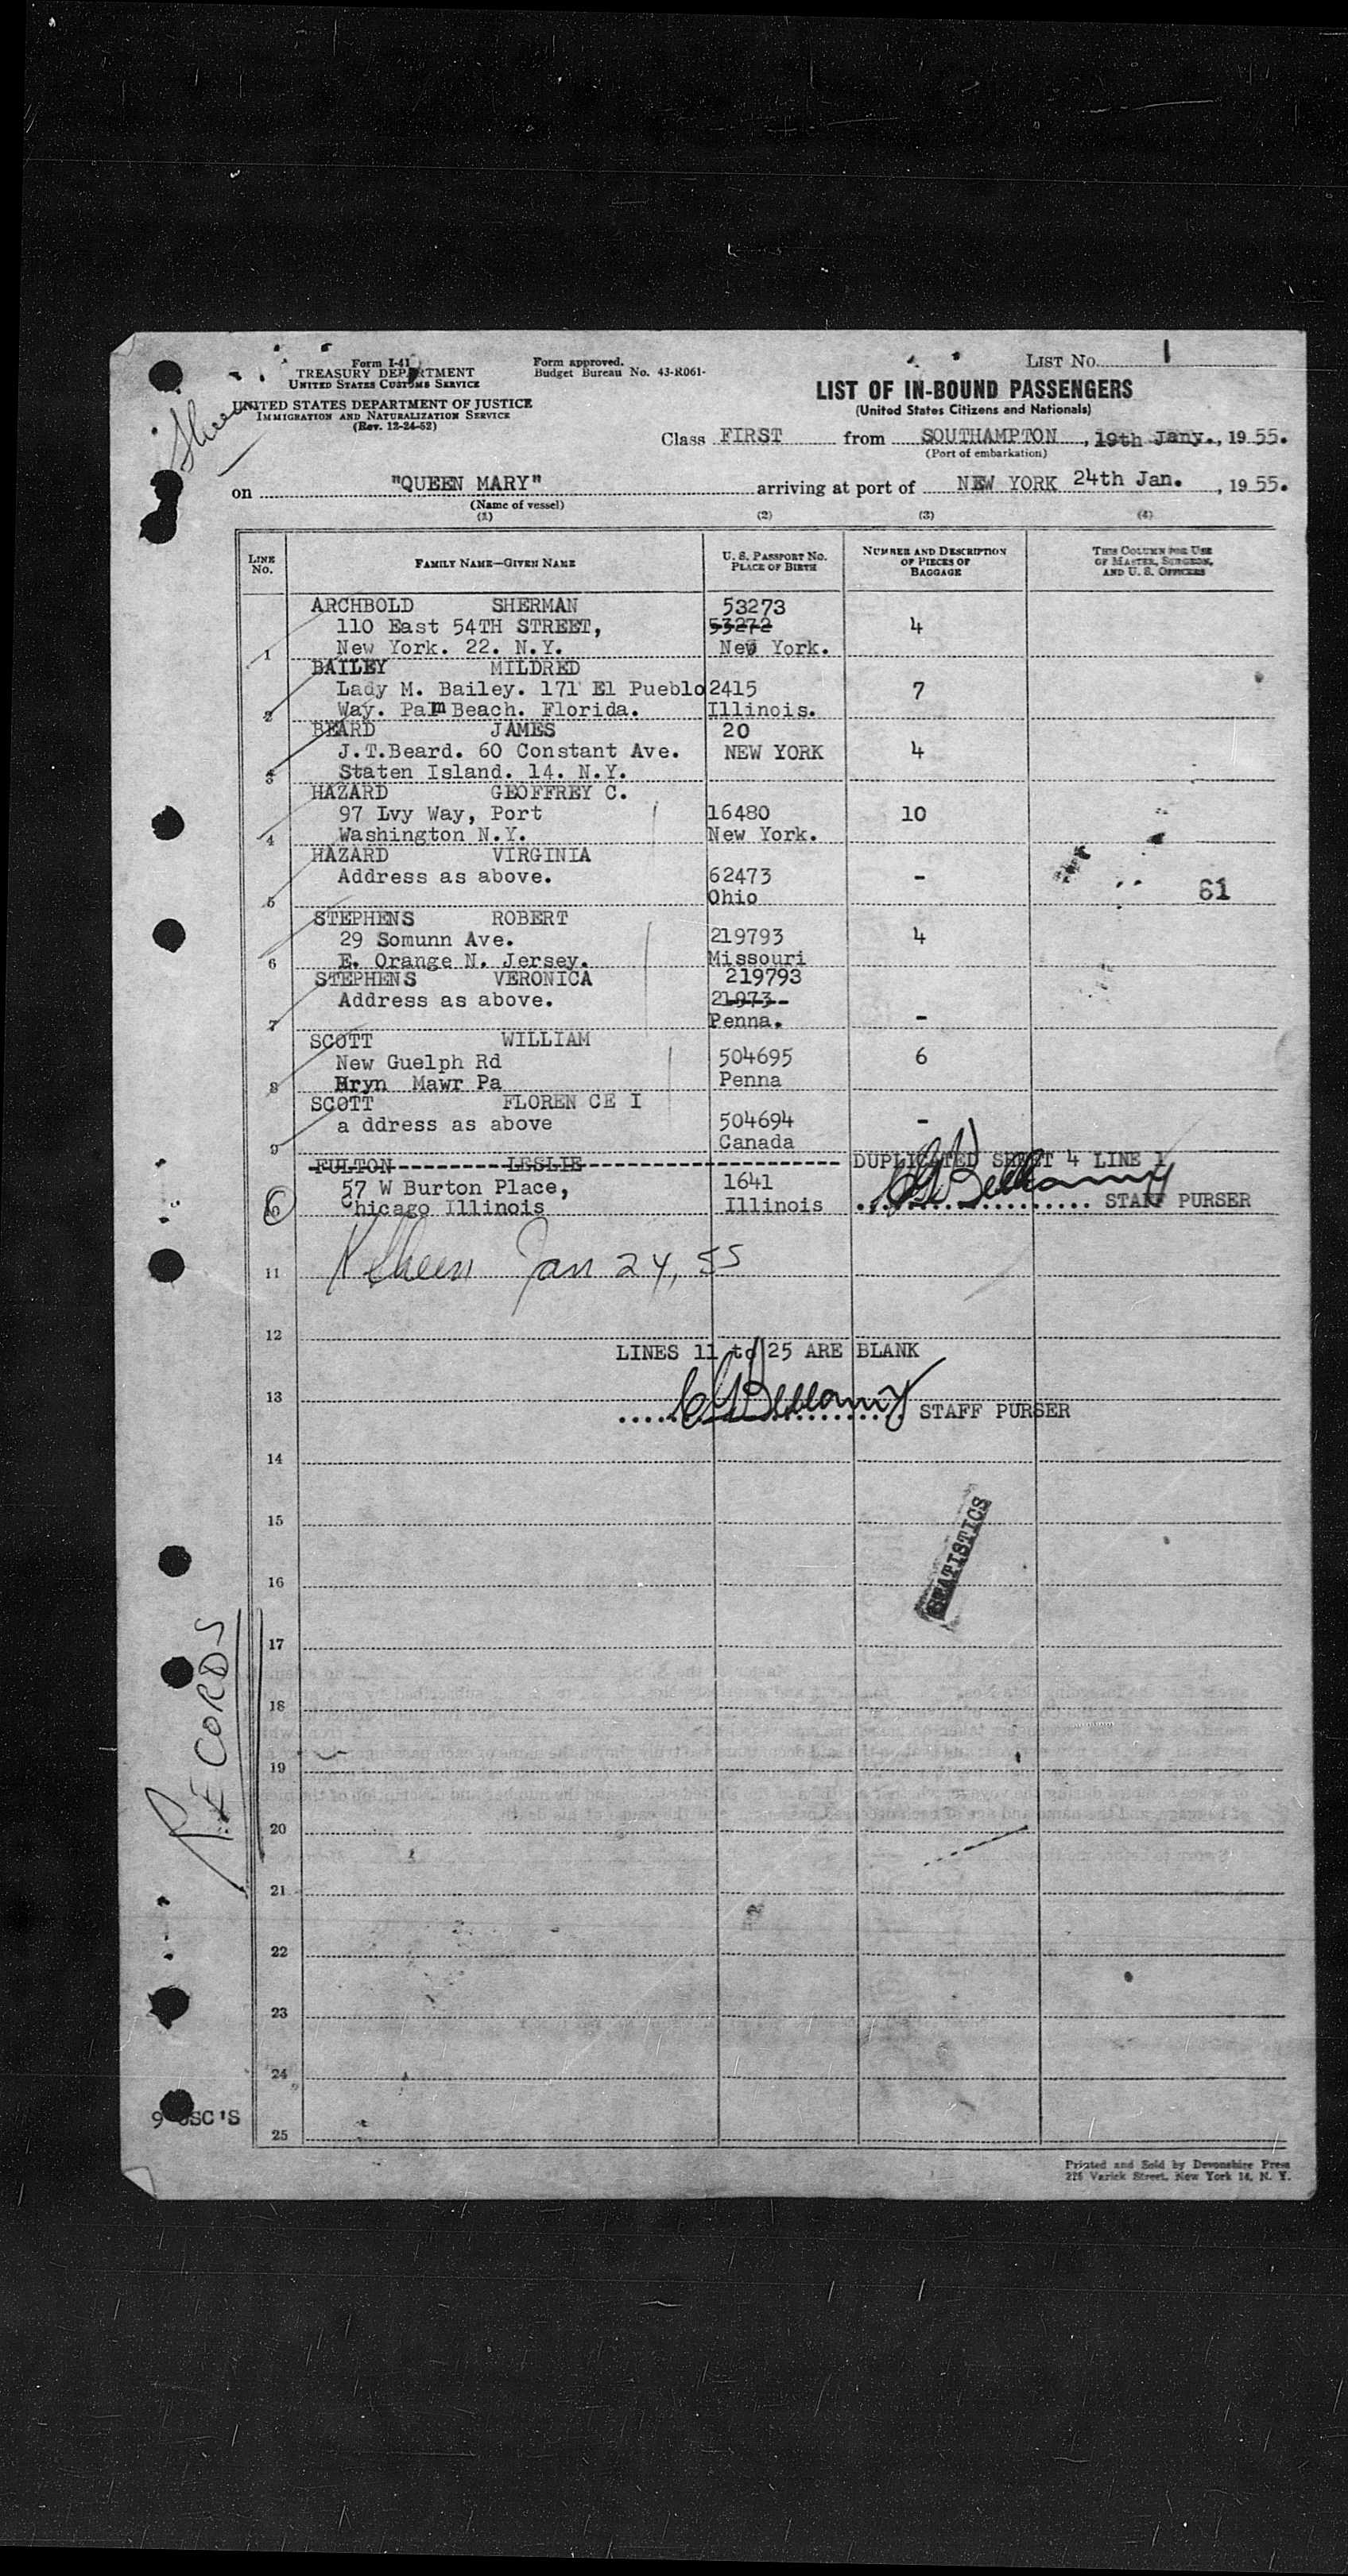 Form I-41
TREASURY DEPARTMENT
UNITED STATES CUSTOMS SERVICE
UNITED STATES DEPARTMENT OF JUSTICE
IMMIGRATION AND NATURALIZATION SERVICE
(Rev. 12-24-52)
Form approved.
Budget Bureau No. 43-R061-
LIST No. 1
LIST OF IN-BOUND PASSENGERS
(United States Citizens and Nationals)
Class FIRST from SOUTHAMPTON, 19th Jany., 1955.
(Port of embarkation)
on "QUEEN MARY" arriving at port of NEW YORK 24th Jan., 1955.
(Name of vessel)
(1) (2) (3) (4)
LINE No. FAMILY NAME—GIVEN NAME U. S. PASSPORT NO. PLACE OF BIRTH NUMBER AND DESCRIPTION OF PIECES OF BAGGAGE THIS COLUMN FOR USE OF MASTER, SURGEON, AND U. S. OFFICERS
ARCHBOLD SHERMAN 53273
110 East 54TH STREET, 53272 4
1 New York. 22. N.Y. New York.
BAILEY MILDRED
Lady M. Bailey. 171 El Pueblo 2415 7
2 Way. Palm Beach. Florida. Illinois.
BEARD JAMES 20
J.T.Beard. 60 Constant Ave. NEW YORK 4
3 Staten Island. 14. N.Y.
HAZARD GEOFFREY C.
97 Lvy Way, Port 16480 10
4 Washington N.Y. New York.
HAZARD VIRGINIA
Address as above. 62473 -
5 Ohio 61
STEPHENS ROBERT
29 Somunn Ave. 219793 4
6 E. Orange N. Jersey. Missouri
STEPHENS VERONICA 219793
Address as above. 21973-
7 Penna. -
SCOTT WILLIAM
New Guelph Rd 504695 6
8 Bryn Mawr Pa Penna
SCOTT FLOREN CE I
a ddress as above 504694 -
9 Canada
FULTON LESLIE DUPLICATED SHEET 4 LINE 1
57 W Burton Place, 1641 Bellamy
10 Chicago Illinois Illinois STAFF PURSER
11 Jan 24, 55
12
LINES 11 to 25 ARE BLANK
13 Bellamy STAFF PURSER
14
15
STATISTICS
16
17
RECORDS
18
19
20
21
22
23
24
9 USC'S
25
Printed and Sold by Devonshire Press
225 Varick Street, New York 14, N. Y.